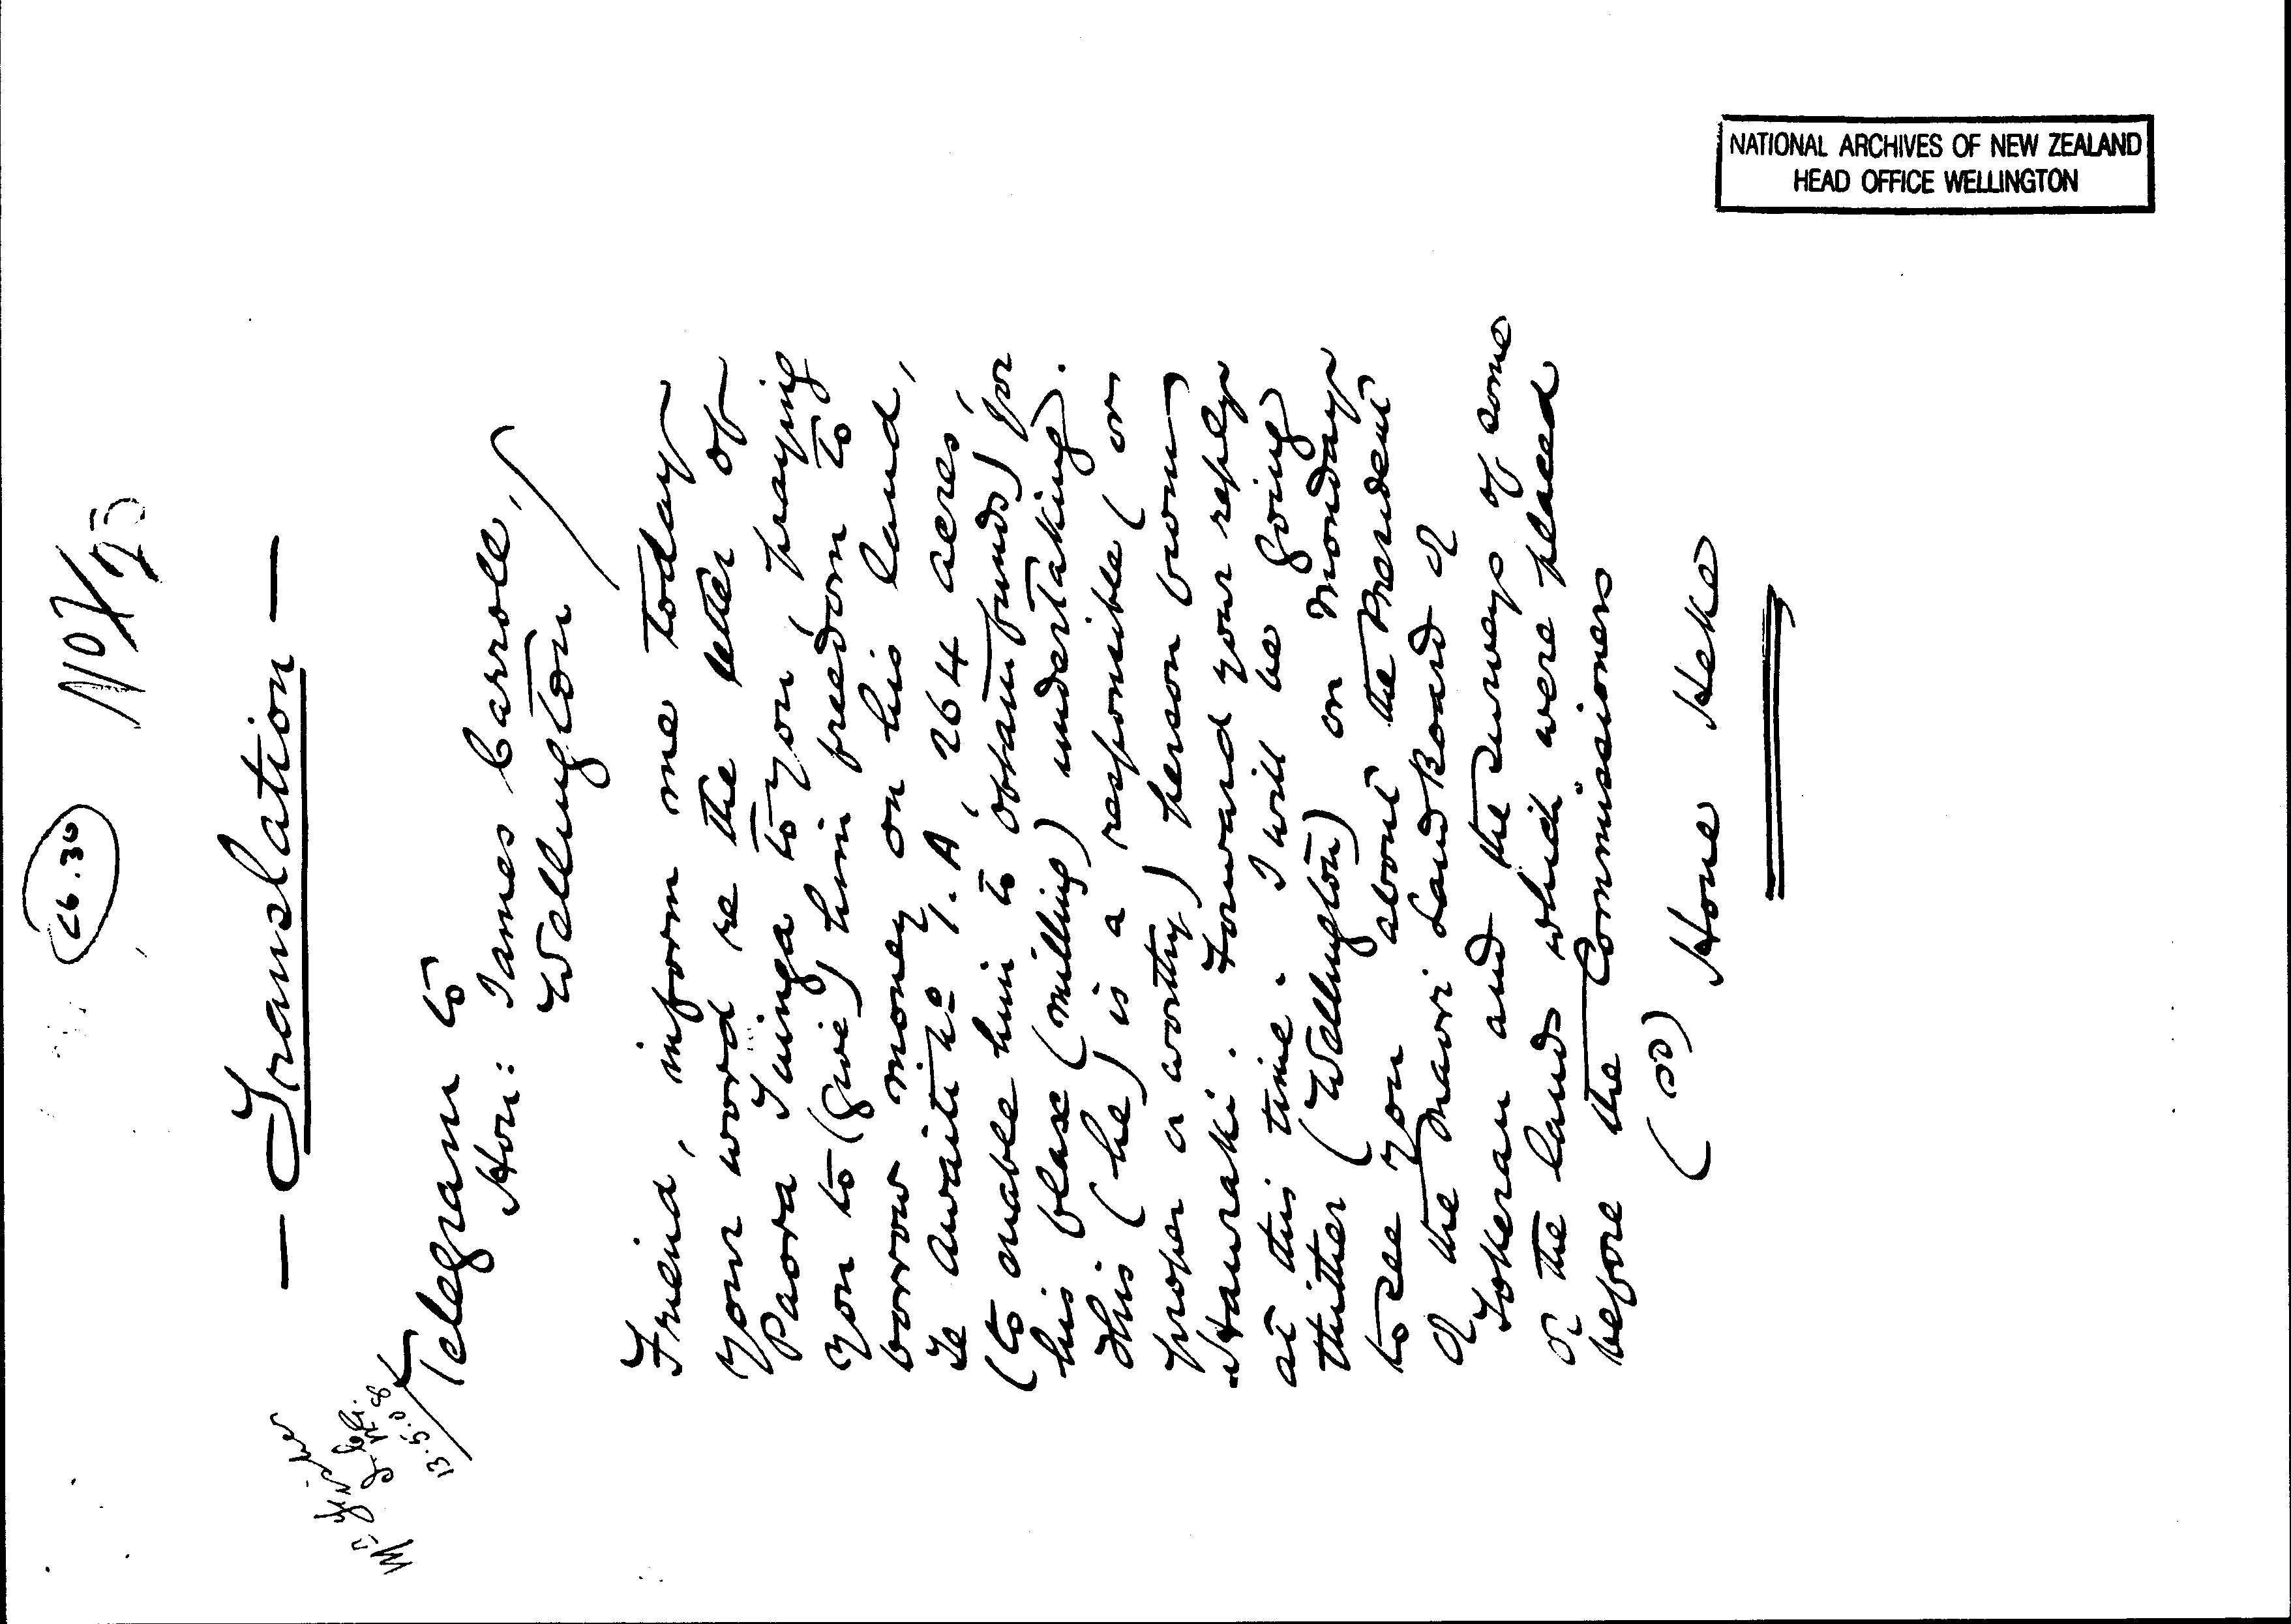 26.30
N07/93
— Translation —
13.5.08
Telegram to
Hon: James Carroll,
Wellington
Friend, inform me today
your word re the letter of
Paora Tuinga to you, praying
you to (give) him freedom to
borrow money on his land,
Te Awaiti No 1. A, 264 acres,
(to enable him to obtain funds) for
his flax (milling) undertaking.
This (he) is a responsible (or
proper or worthy) person from
Hauraki. Forward your reply
at this time. I will be going
thither (Wellington) on Monday
to see you about the President
of the Maori Land Board of
Tokerau and the surveys of some
of the lands which were placed
before the Commissioners
(sd) Hone Heke
NATIONAL ARCHIVES OF NEW ZEALAND
HEAD OFFICE WELLINGTON